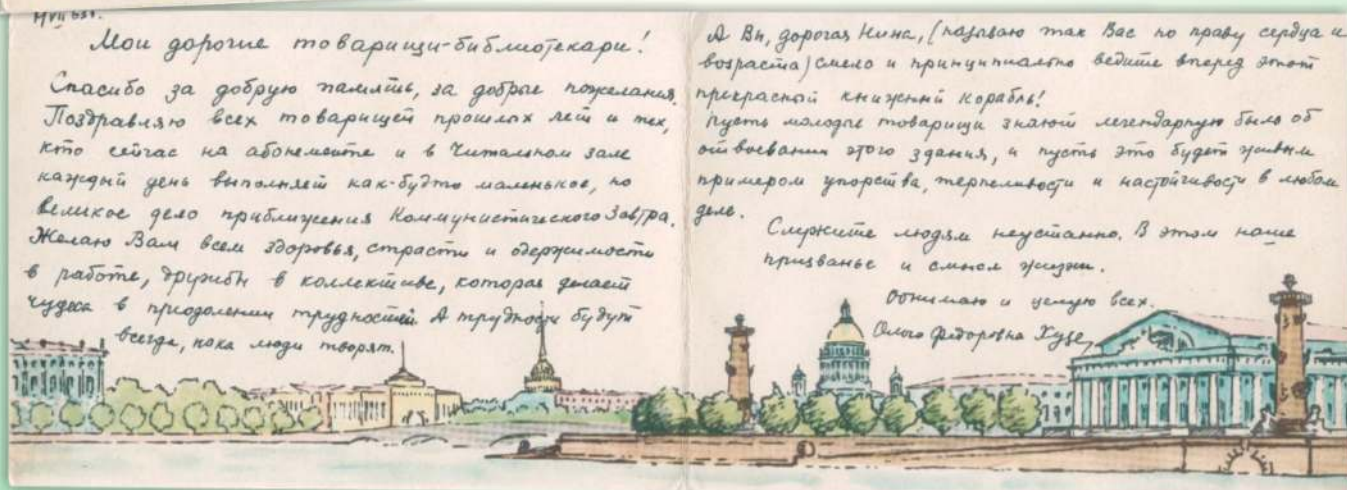 Мои дорогие товарищи-библиотекари!
Спасибо за добрую память, за добрые пожелания.
Поздравляю всех товарищей прошлых лет и тех,
кто сейчас на абонементе и в Читальном зале
каждый день выполняет как-будто маленькое, но
великое дело приближения Коммунистического Завтра.
Желаю Вам всем здоровья, страсти и одержимости
в работе, дружбы в коллективе, которая делает
чудеса в преодолении трудностей. А трудности будут
всегда, пока люди творят.
А Вы, дорогая Нина, (называю так Вас по праву сердца и
возраста) смело и принципиально ведите вперед этот
прекрасный книжный корабль!
Пусть молодые товарищи знают легендарную быль об
отвоевании этого здания, и пусть это будет живым
примером упорства, терпеливости и настойчивости в любом
деле.
Служите людям неустанно. В этом наше
призванье и смысл жизни.
Обнимаю и целую всех.
Ольга Федоровна Хузе